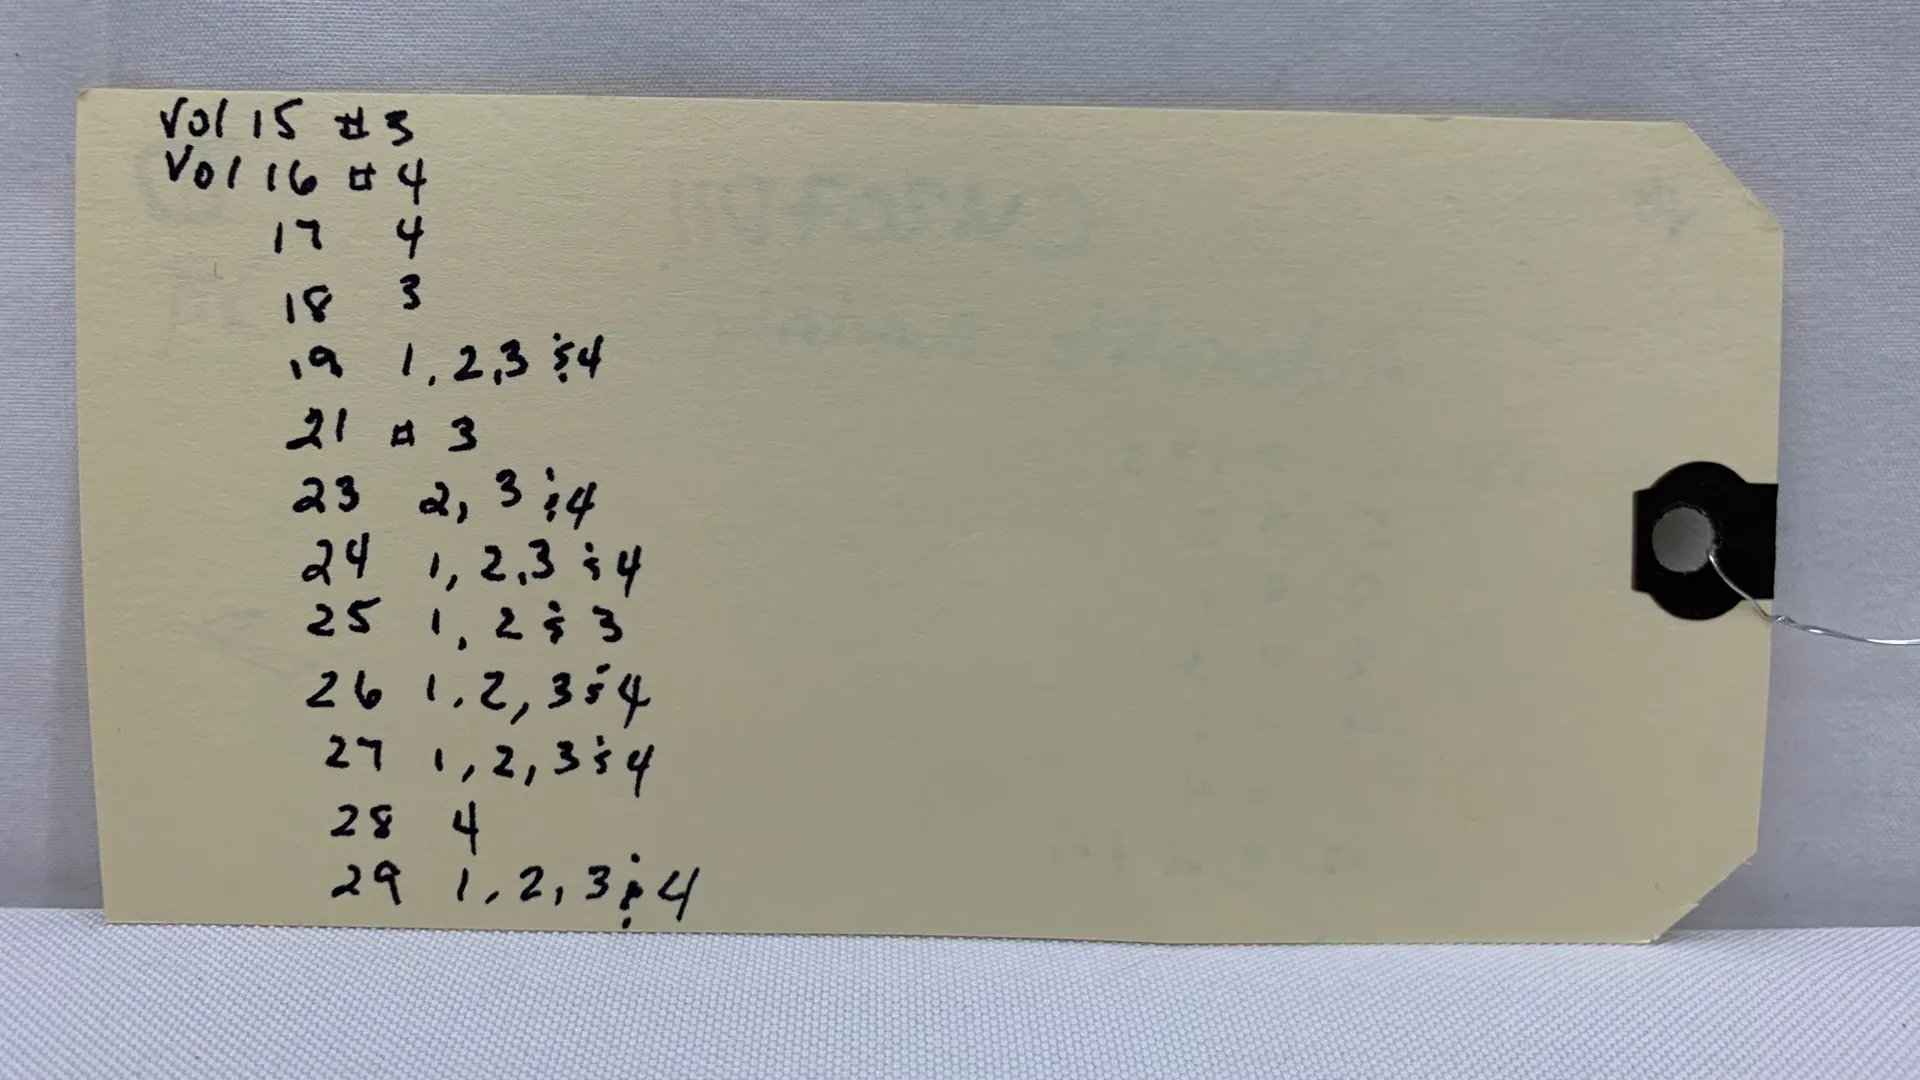 Vol 15 # 3
Vol 16 # 4
17 4
18 3
19 1, 2, 3 & 4
21 # 3
23 2, 3 & 4
24 1, 2, 3 & 4
25 1, 2 & 3
26 1, 2, 3 & 4
27 1, 2, 3 & 4
28 4
29 1, 2, 3 & 4